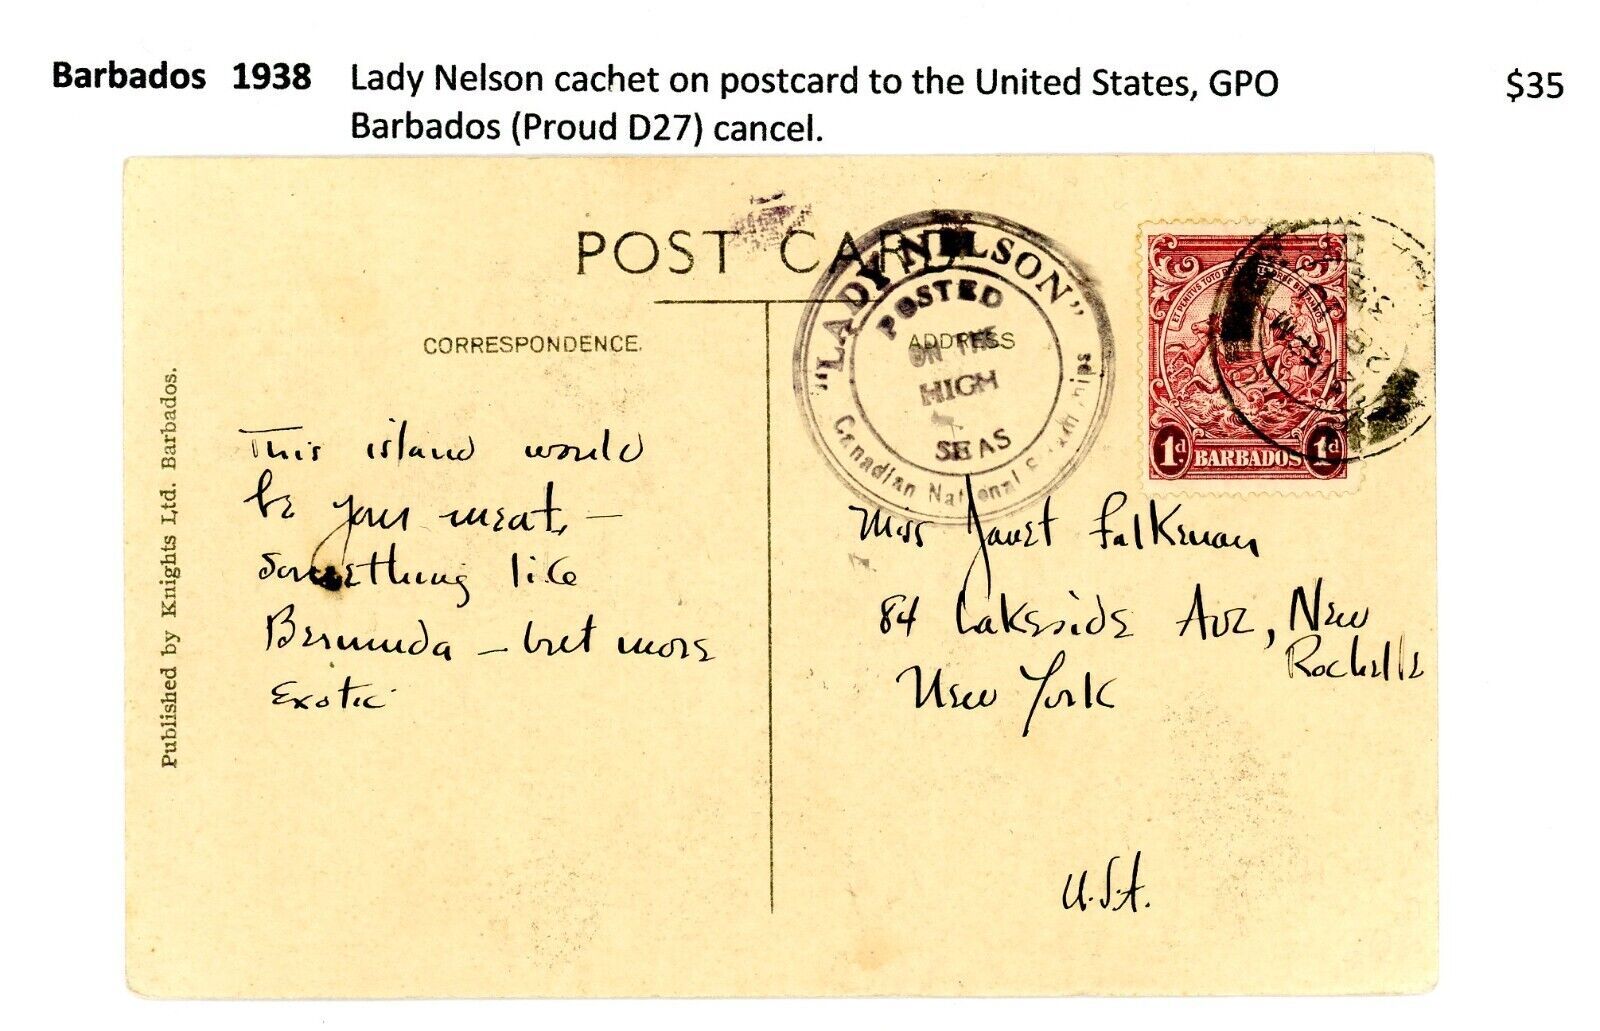 Barbados 1938 Lady Nelson cachet on postcard to the United States, GPO $35
Barbados (Proud D27) cancel.
POST CARD
CORRESPONDENCE.
ADDRESS
Published by Knights Ltd. Barbados.
"LADY NELSON"
POSTED
ON THE
HIGH
SEAS
Canadian National Steamships
1d. BARBADOS 1d.
This island would
be your meat, –
something like
Bermuda – but more
Exotic.
Miss Janet Falkenau
84 Lakeside Ave, New
Rochelle
New York
U.S.A.